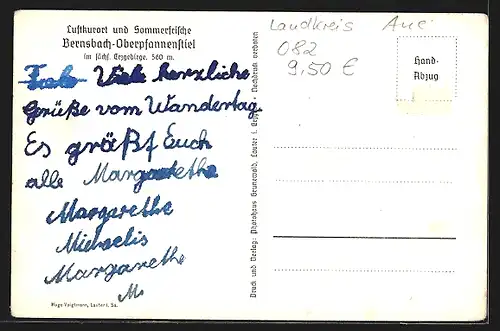 Luftkurort und Sommerfrische
Bernsbach-Oberpfannenstiel
im sächs. Erzgebirge. 560 m.
Viele herzliche
Grüße vom Wandertag.
Es größt Euch
alle Margaretha
Margarethe
Michaelis
Margarethe
M.
Hugo Voigtmann, Lauter i. Sa.
Druck und Verlag: Photohaus Grunewald, Lauter i. Erzgeb. Nachdruck verboten
Landkreis Aue
082
9,50 €
Hand-
Abzug